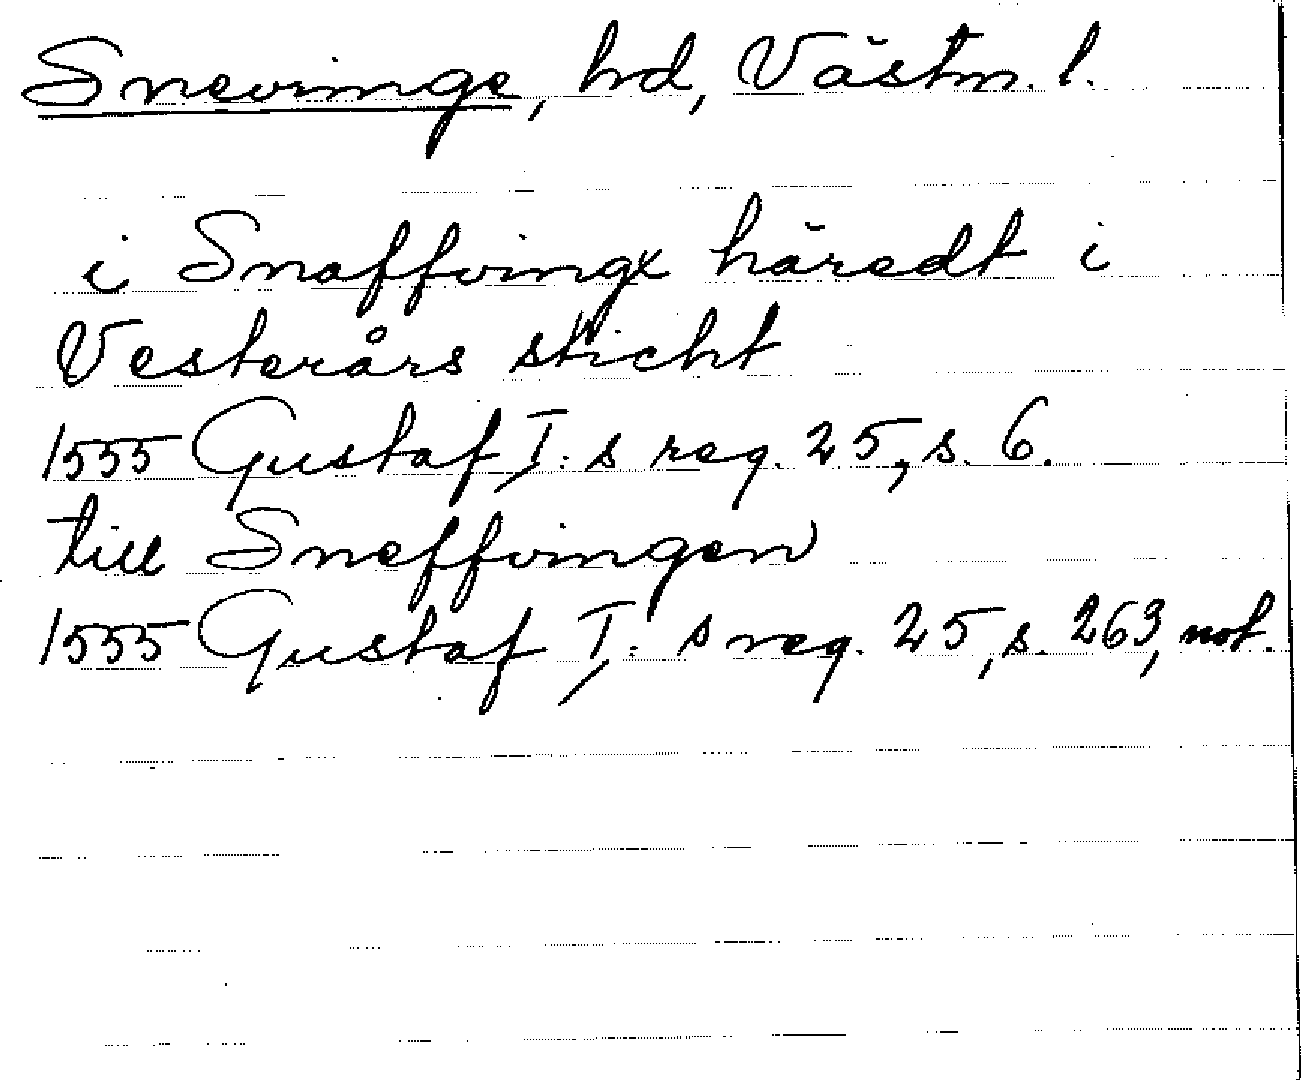 Snevringe, hd, Västm. l.
i Snaffvingx häredt i
Vesterårs sticht
1555 Gustaf I:s reg. 25, s. 6.
till Sneffvingen
1555 Gustaf I:s reg. 25, s. 263, not.